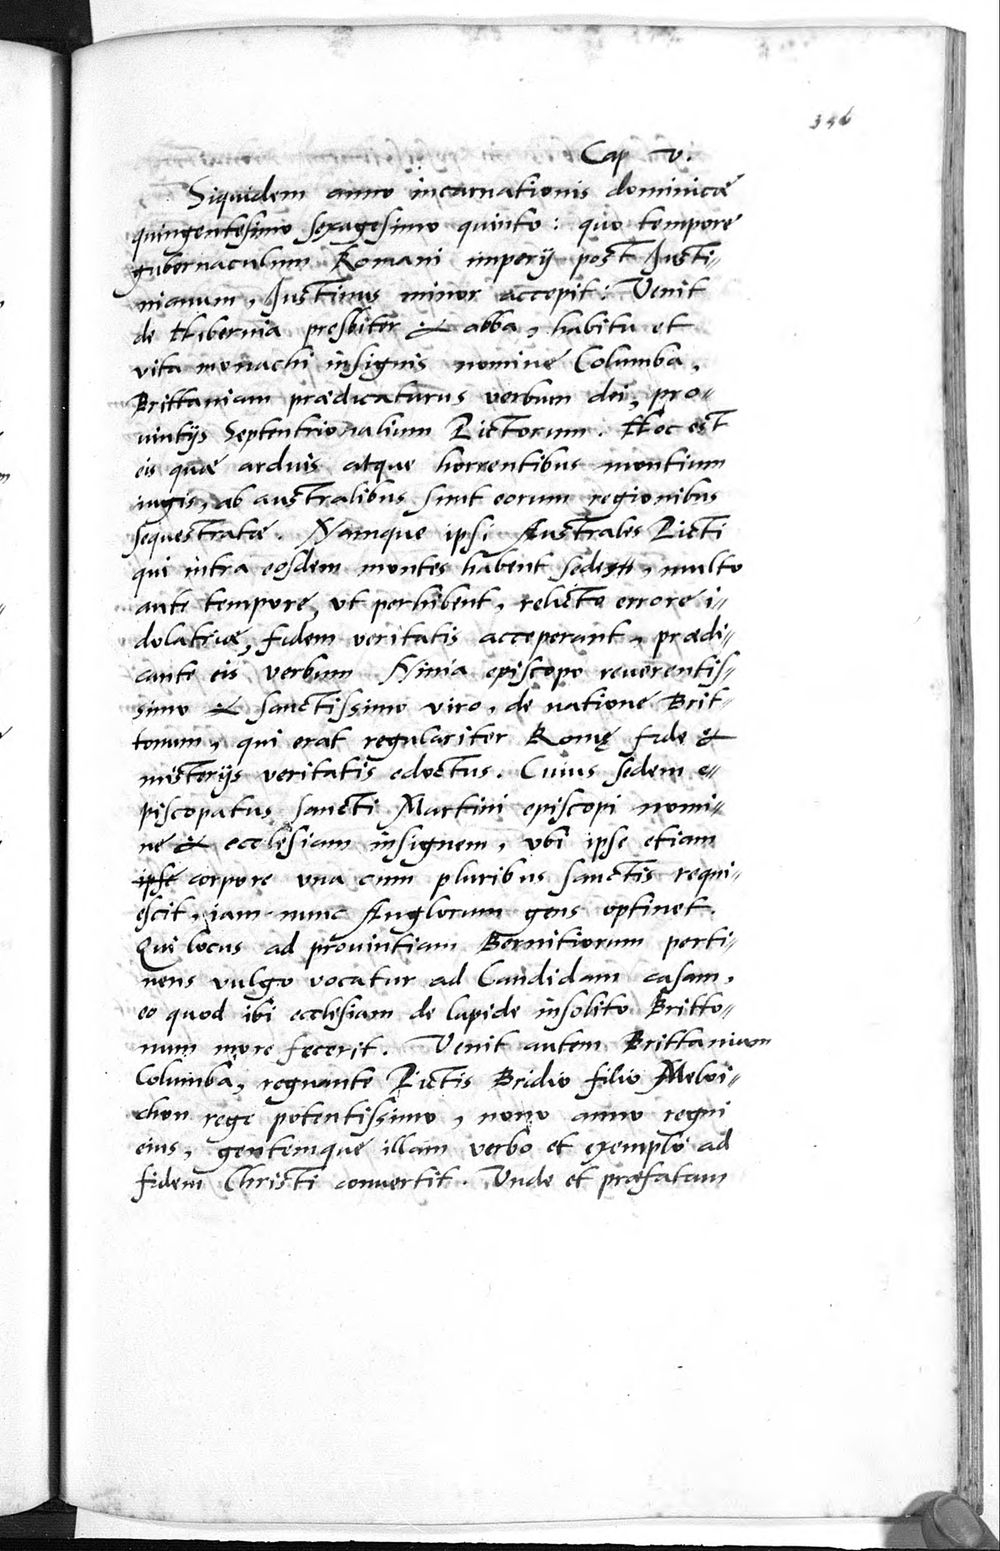 356
Cap v.
Siquidem anno incarnationis dominicæ
quingentesimo sexagesimo quinto: quo tempore
gubernaculum Romani imperij post Justi-
nianum, Justinus minor accepit: Venit
de Hibernia presbiter & abba, habitu et
vita monachi insignis nomine Columba,
Brittaniam prædicaturus verbum dei, pro-
uintijs Septentrionalium Pictorum. Hoc est
eis quæ arduis atque horrentibus montium
iugis, ab australibus sunt eorum regionibus
sequestratæ. Namque ipsi Australes Picti
qui intra eosdem montes habent sedes, multo
ante tempore, vt perhibent, relicto errore i-
dolatriæ, fidem veritatis acceperant, prædi-
cante eis verbum Ninia episcopo reuerentis-
simo & sanctissimo viro, de natione Brit-
tonum, qui erat regulariter Romę fide &
misterijs veritatis edoctus. Cuius sedem e-
piscopatus sancti Martini episcopi nomi-
ne & ecclesiam insignem, vbi ipse etiam
ipse corpore vna cum pluribus sanctis requi-
escit, iam nunc Anglorum gens optinet.
Qui locus ad prouintiam Bernitiorum perti-
nens vulgo vocatur ad Candidam casam,
eo quod ibi ecclesiam de lapide insolito Britto-
num more fecerit. Venit autem Brittaniam
Columba, regnante Pictis Bridio filio Meloi-
chon rege potentissimo, nono anno regni
eius, gentemque illam verbo et exemplo ad
fidem Christi conuertit. Vnde et præfatam